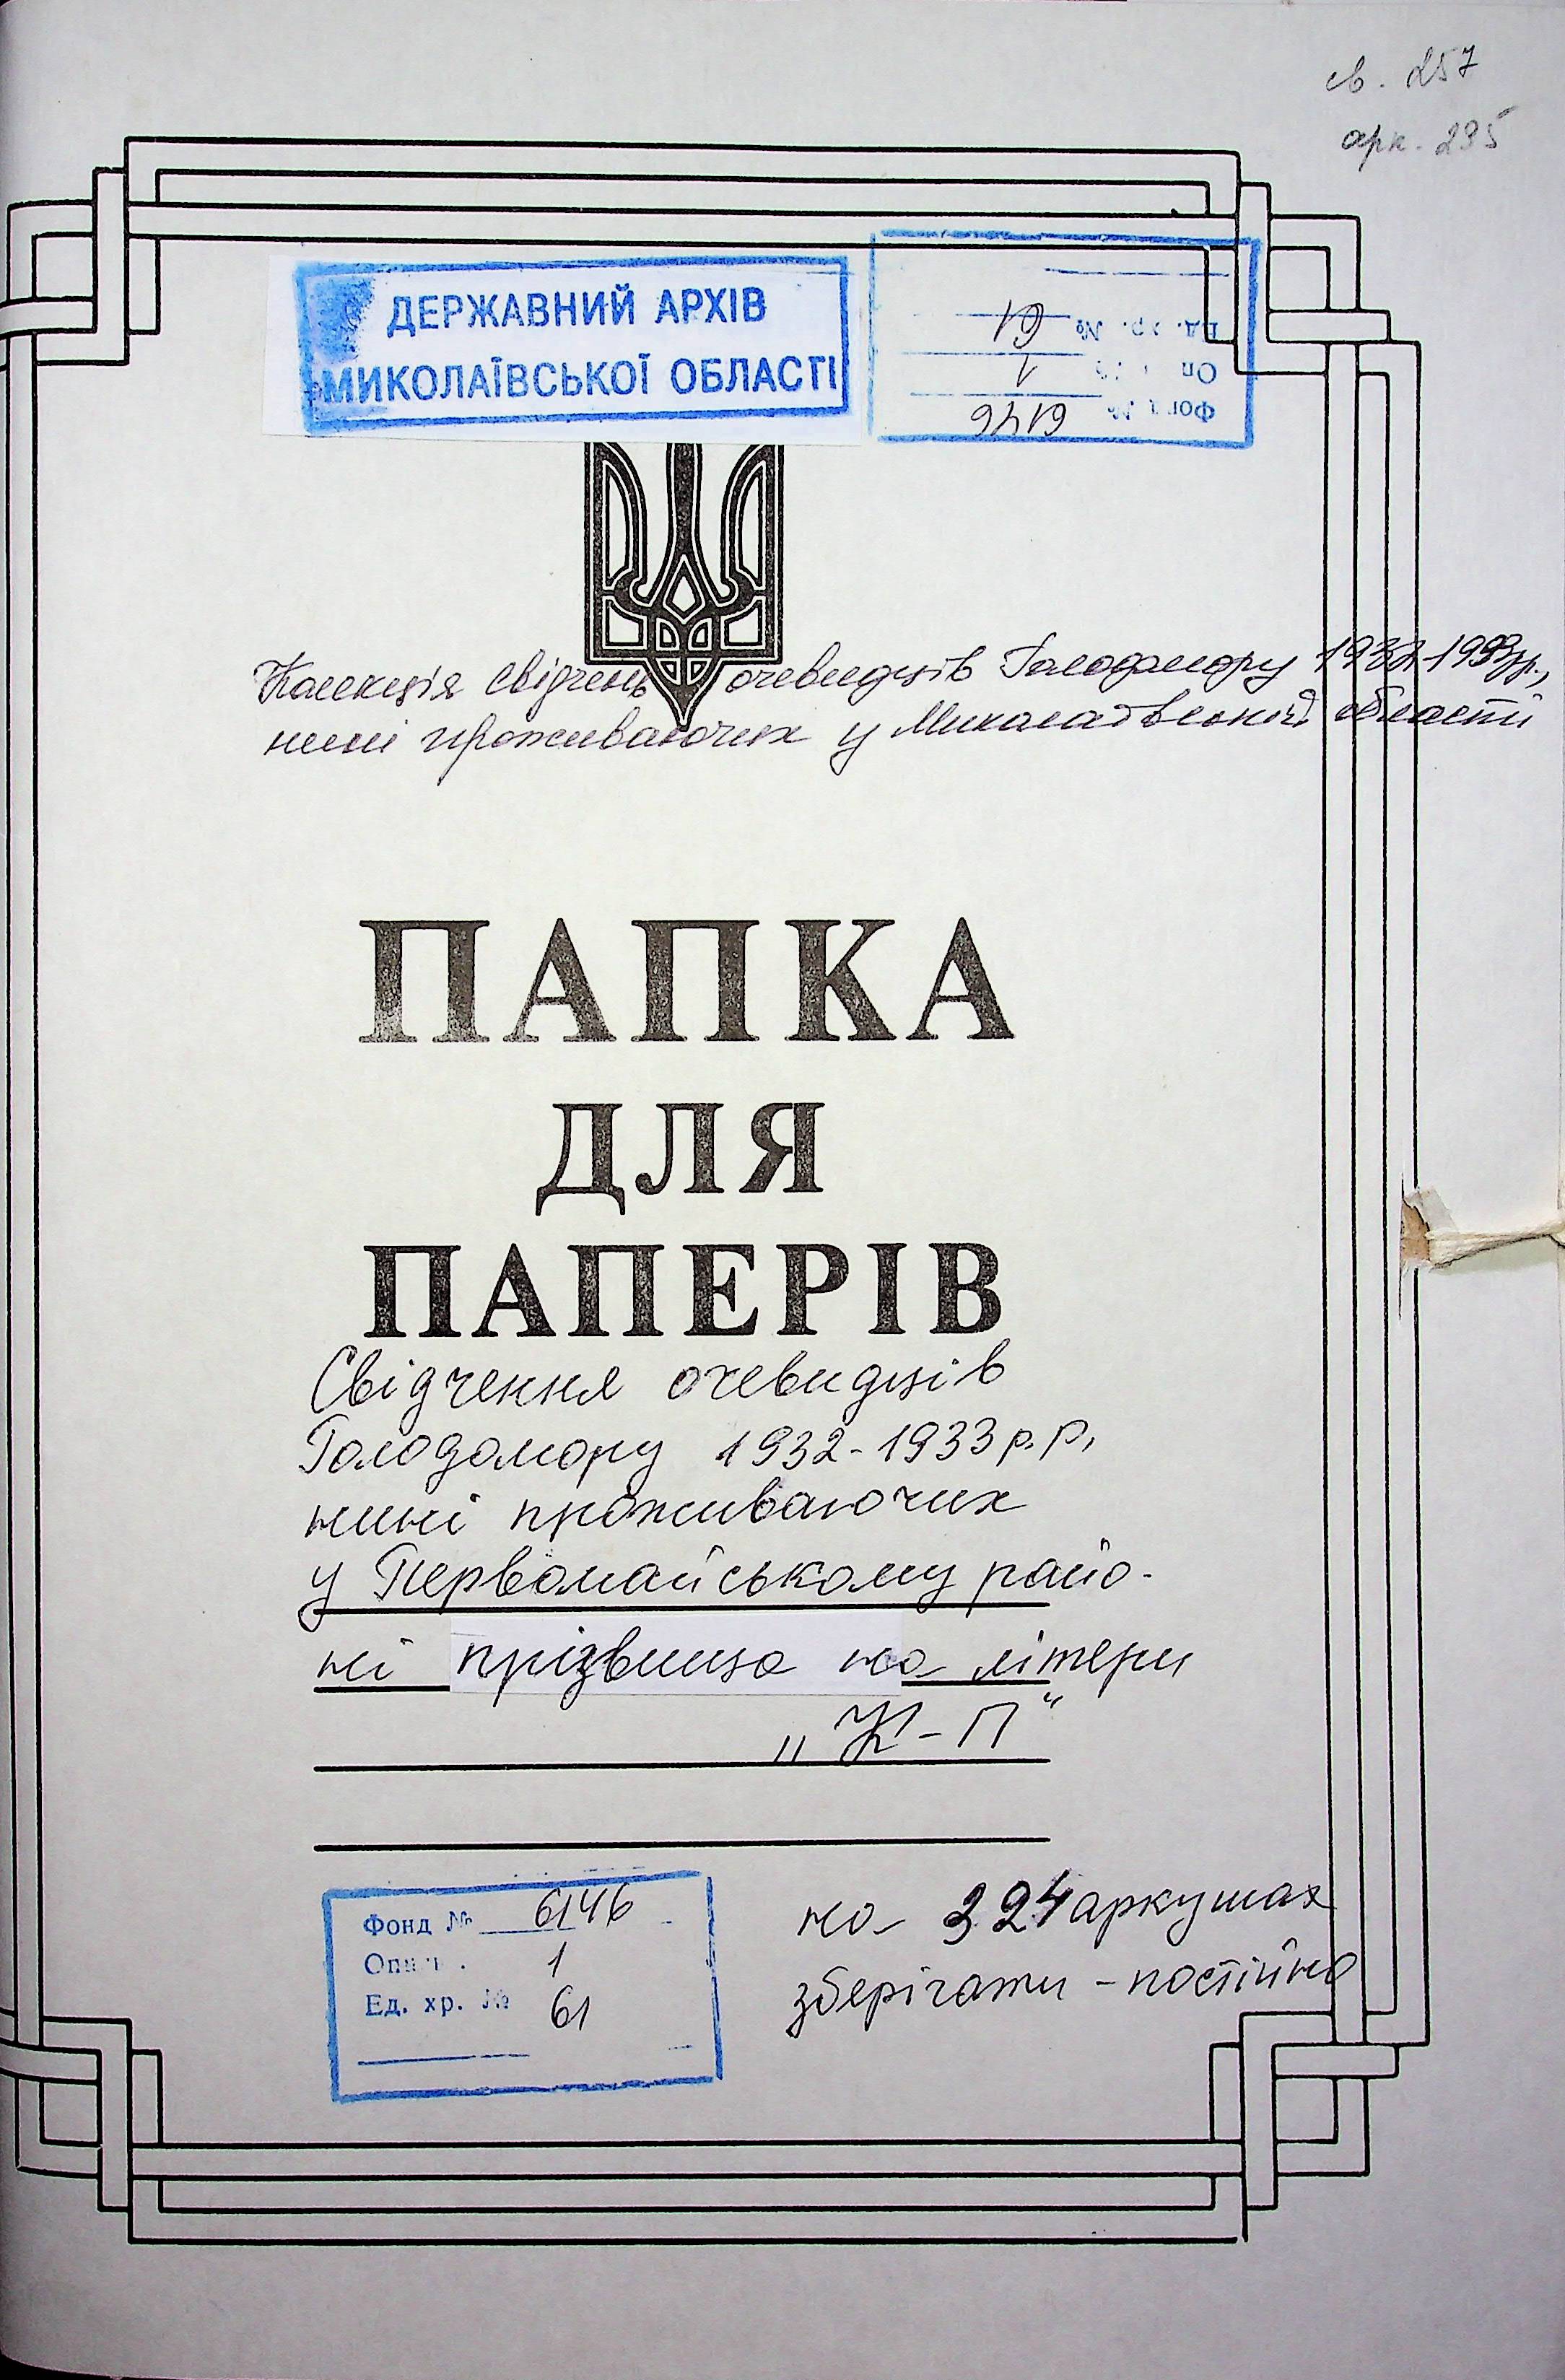 св. 257
арк. 295
ДЕРЖАВНИЙ АРХІВ
МИКОЛАЇВСЬКОЇ ОБЛАСТІ
Фонд № 6146
Оп 1
Ед. хр. № 61
Колекція свідчень очевидців Голодомору 1932-1933рр.,
нині проживаючих у Миколаївській області
ПАПКА
ДЛЯ
ПАПЕРІВ
Свідчення очевидців
Голодомору 1932-1933 р.р,
нині проживаючих
у Первомайському райо-
ні прізвища на літери
„К-П“
Фонд № 6146
Опи 1
Ед. хр. № 61
на 324 аркушах
зберігати - постійно